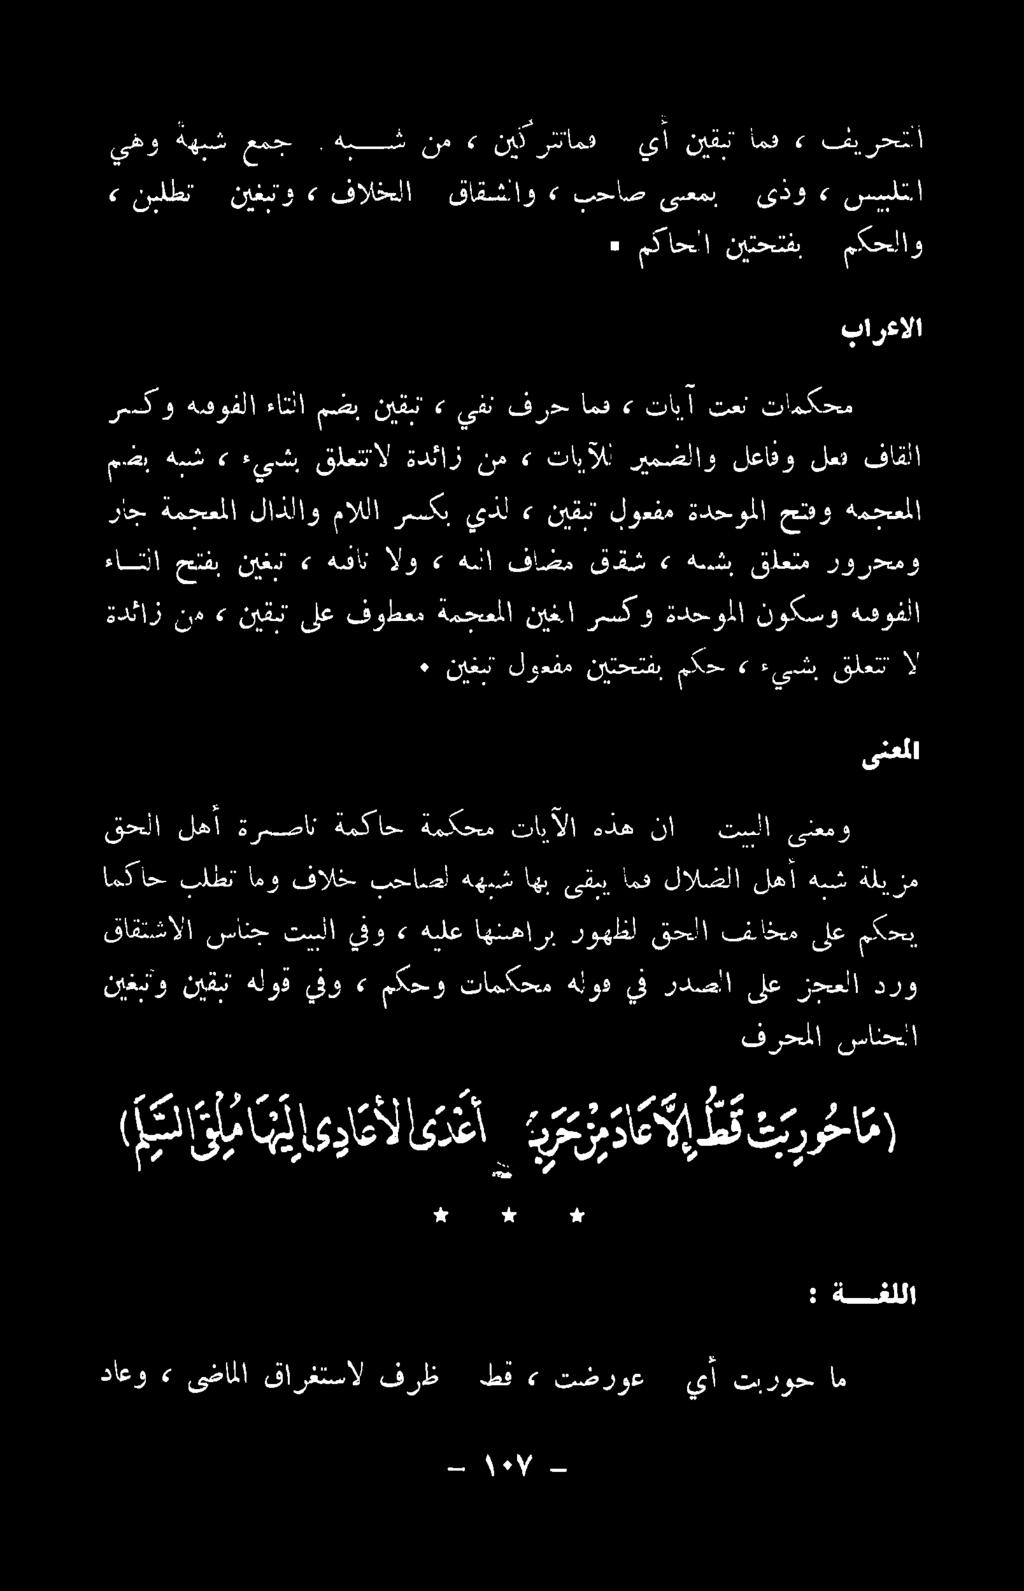 التحريف ، فما تبقين أي فماتتركين ، من شبه . جمع شبهة وهي
التلبيس ، وذى بمعنى صاحب ، والشقاق الخلاف ، وتبغين تطلبن ،
والحكم بفتحتين الحاكم .
الاعراب
محكمات نعت آيات ، فما حرف نفي ، تبقين بضم التاء الفوقيه وكسر
القاف فعل وفاعل والضمير للآيات ، من زائدة لاتتعلق بشيء ، شبه بضم
المعجمه وفتح الموحدة مفعول تبقين ، لذي بكسر اللام والذال المعجمة جار
ومحرور متعلق بشبه ، شقق مضاف اليه ، ولا نافيه ، تبغين بفتح التاء
الفوقيه وسكون الموحدة وكسر الغين المعجمة معطوف على تبقين ، من زائدة
لا تتعلق بشيء ، حكم بفتحتين مفعول تبغين .
المعنى
ومعنى البيت ان هذه الآيات محكمة حاكمة ناصرة أهل الحق
مزيلة شبه أهل الضلال فما يبقى بها شبهه لصاحب خلاف وما تطلب حاكما
يحكم على مخالف الحق لظهور براهينها عليه ، وفي البيت جناس الاشتقاق
ورد العجز على الصدر في قوله محكمات وحكم ، وفي قوله تبقين وتبغين
الجناس المحرف
(مَاحُورِبَتْ قَطُّ إِلاَّ عَادَ مِنْ حَرَبٍ أَعْدَى الأَعَادِي إِلَيْهَا مُلْقِيَ السَّلَمِ)
* * *
اللغـة :
ما حوربت أي عورضت ، قط ظرف لاستغراق الماضى ، وعاد
- ١٠٧ -